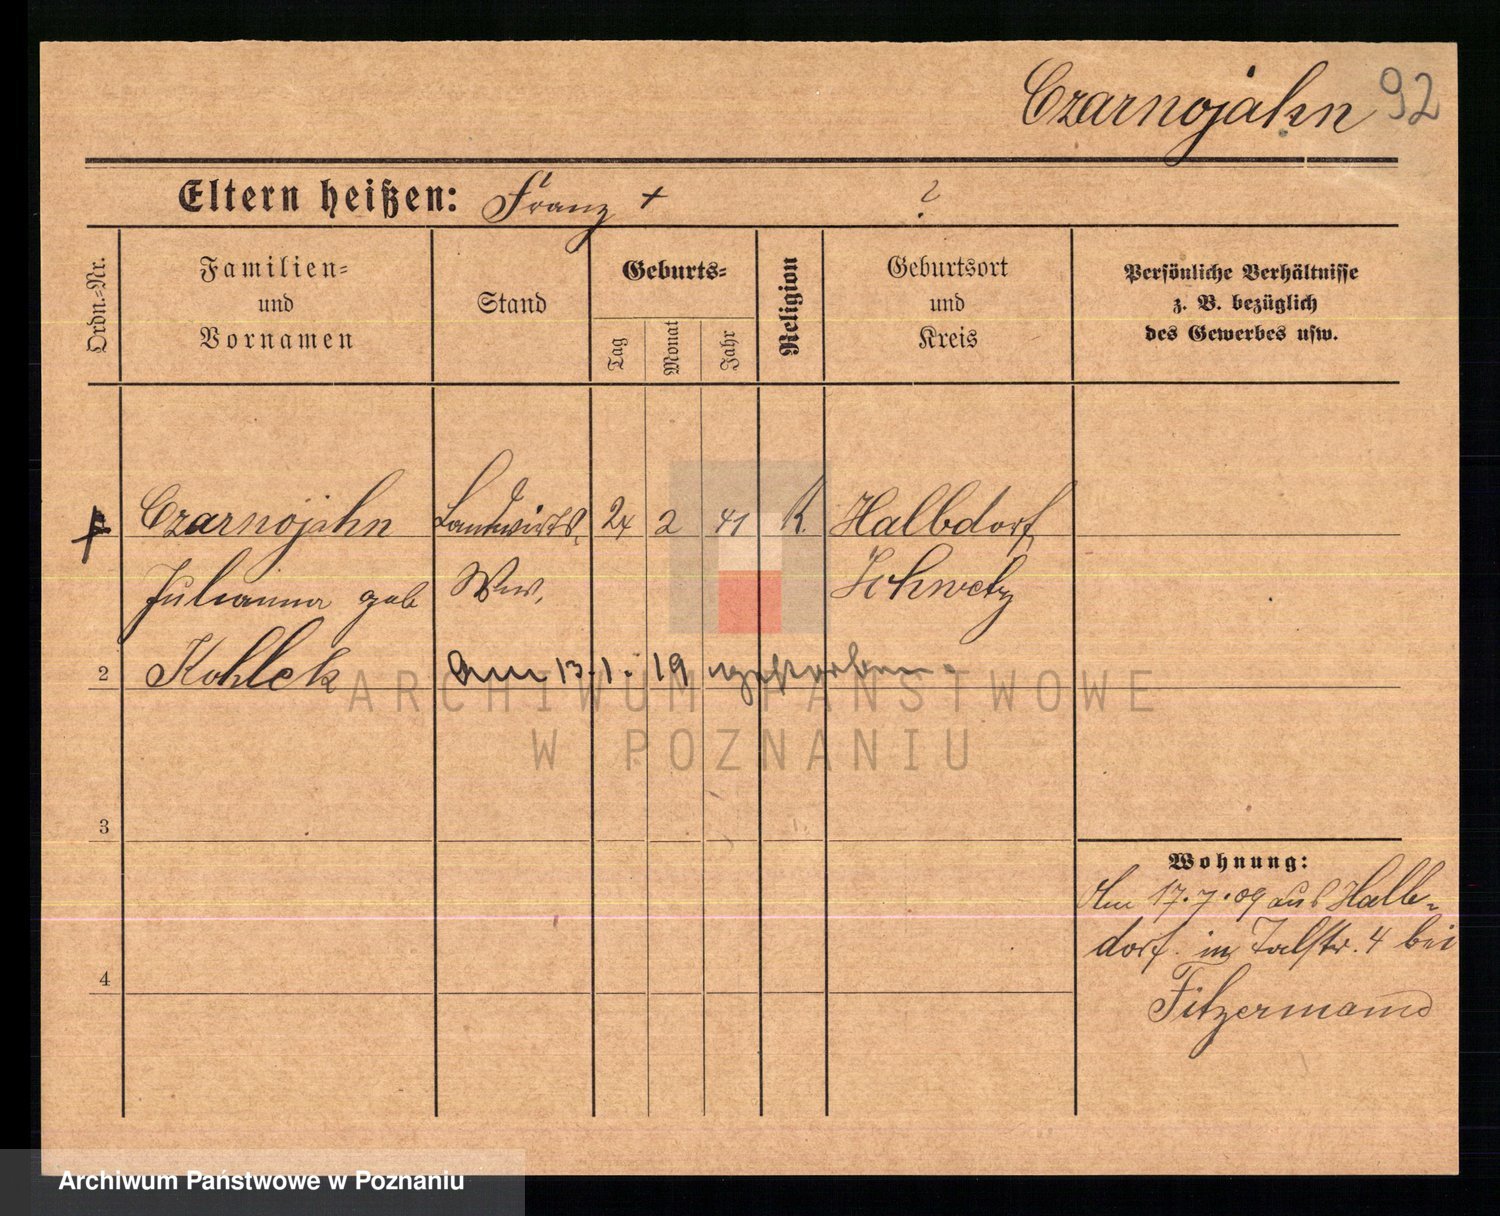 Czarnojahn 92
Eltern heißen: Franz + ?
Ordn.-Nr.
Familien-
und
Vornamen
Stand
Geburts-
Tag
Monat
Jahr
Religion
Geburtsort
und
Kreis
Persönliche Verhältnisse
z. B. bezüglich
des Gewerbes usw.
Czarnojahn Landwirts 24 2 41 K. Halbdorf
Julianna geb Ww. Schwetz
2 Kohlek am 13.1.19 gestorben.
3
4
Wohnung:
Am 17.7.09 aus Halb-
dorf in Talstr. 4 bei
Fitzermann
ARCHIWUM PAŃSTWOWE
W POZNANIU
Archiwum Państwowe w Poznaniu